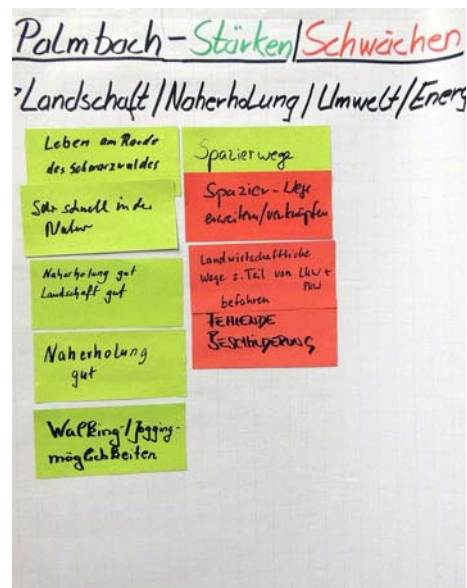 Palmbach - Stärken/Schwächen
Landschaft/Naherholung/Umwelt/Energ
Leben am Rande
des Schwarzwaldes
Sehr schnell in der
Natur
Naherholung gut
Landschaft gut
Naherholung
gut
Walking-/Jogging-
möglichkeiten
Spazierwege
Spazier-Wege
erweitern/verknüpfen
Landwirtschaftliche
Wege z. Teil von LKW +
PKW
befahren
FEHLENDE
BESCHILDERUNG